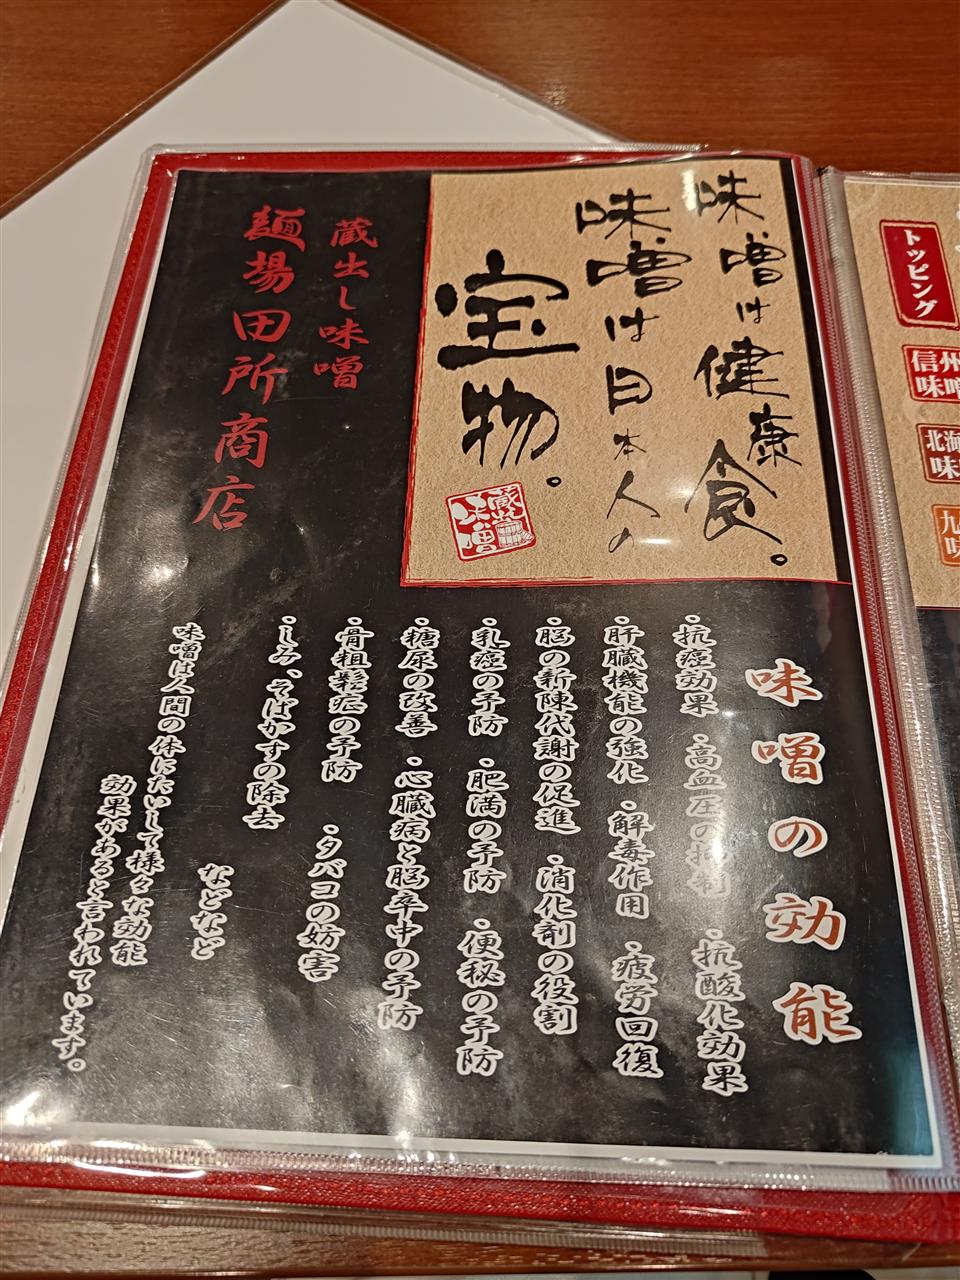 味噌は健康食。
味噌は日本人の
宝物。
蔵出し味噌
蔵出し味噌
麺場田所商店
味噌の効能
・抗癌効果 ・高血圧の抑制 ・抗酸化効果
・肝臓機能の強化 ・解毒作用 ・疲労回復
・脳の新陳代謝の促進 ・消化剤の役割
・乳癌の予防 ・肥満の予防 ・便秘の予防
・糖尿の改善 ・心臓病と脳卒中の予防
・骨粗鬆症の予防 ・タバコの妨害
・しみ、そばかすの除去
などなど
味噌は人間の体にたいして様々な効能
効果があると言われています。
トッピング
信州
味噌
北海
味
九
味